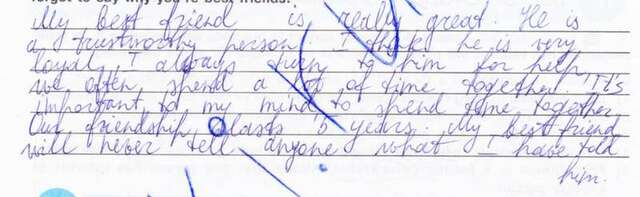 forget to say why you're best friends.
My best friend is really great. He is
a trustworthy person. I think he is very
loyal, I always turn to him for help,
we often spend a lot of time together. It's
important, to my mind, to spend time together.
Our friendship lasts 5 years. My best friend
will never tell anyone what I have told
him.